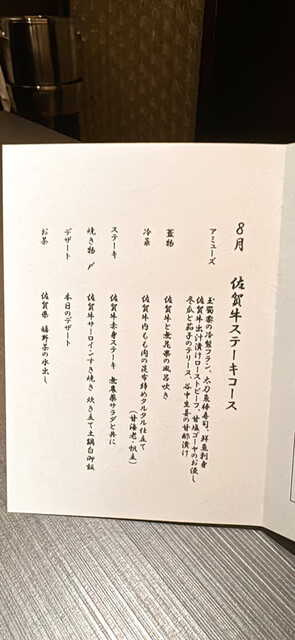 8月 佐賀牛ステーキコース
アミューズ
玉蜀黍の冷製フラン、太刀魚棒寿司、鮮魚刺身
佐賀牛出汁漬けローストビーフ、甘塩ゴーヤのお浸し
冬瓜と茄子のテリーヌ、谷中生姜の甘酢漬け
蓋物 佐賀牛と無花果の風呂吹き
冷菜 佐賀牛内もも肉の昆布締めタルタル仕立て
(甘海老・帆立)
ステーキ 佐賀牛赤身ステーキ 無農薬サラダと共に
焼き物 〆 佐賀牛サーロインすき焼き 炊き立て土鍋白御飯
デザート 本日のデザート
お茶 佐賀県 嬉野茶の水出し